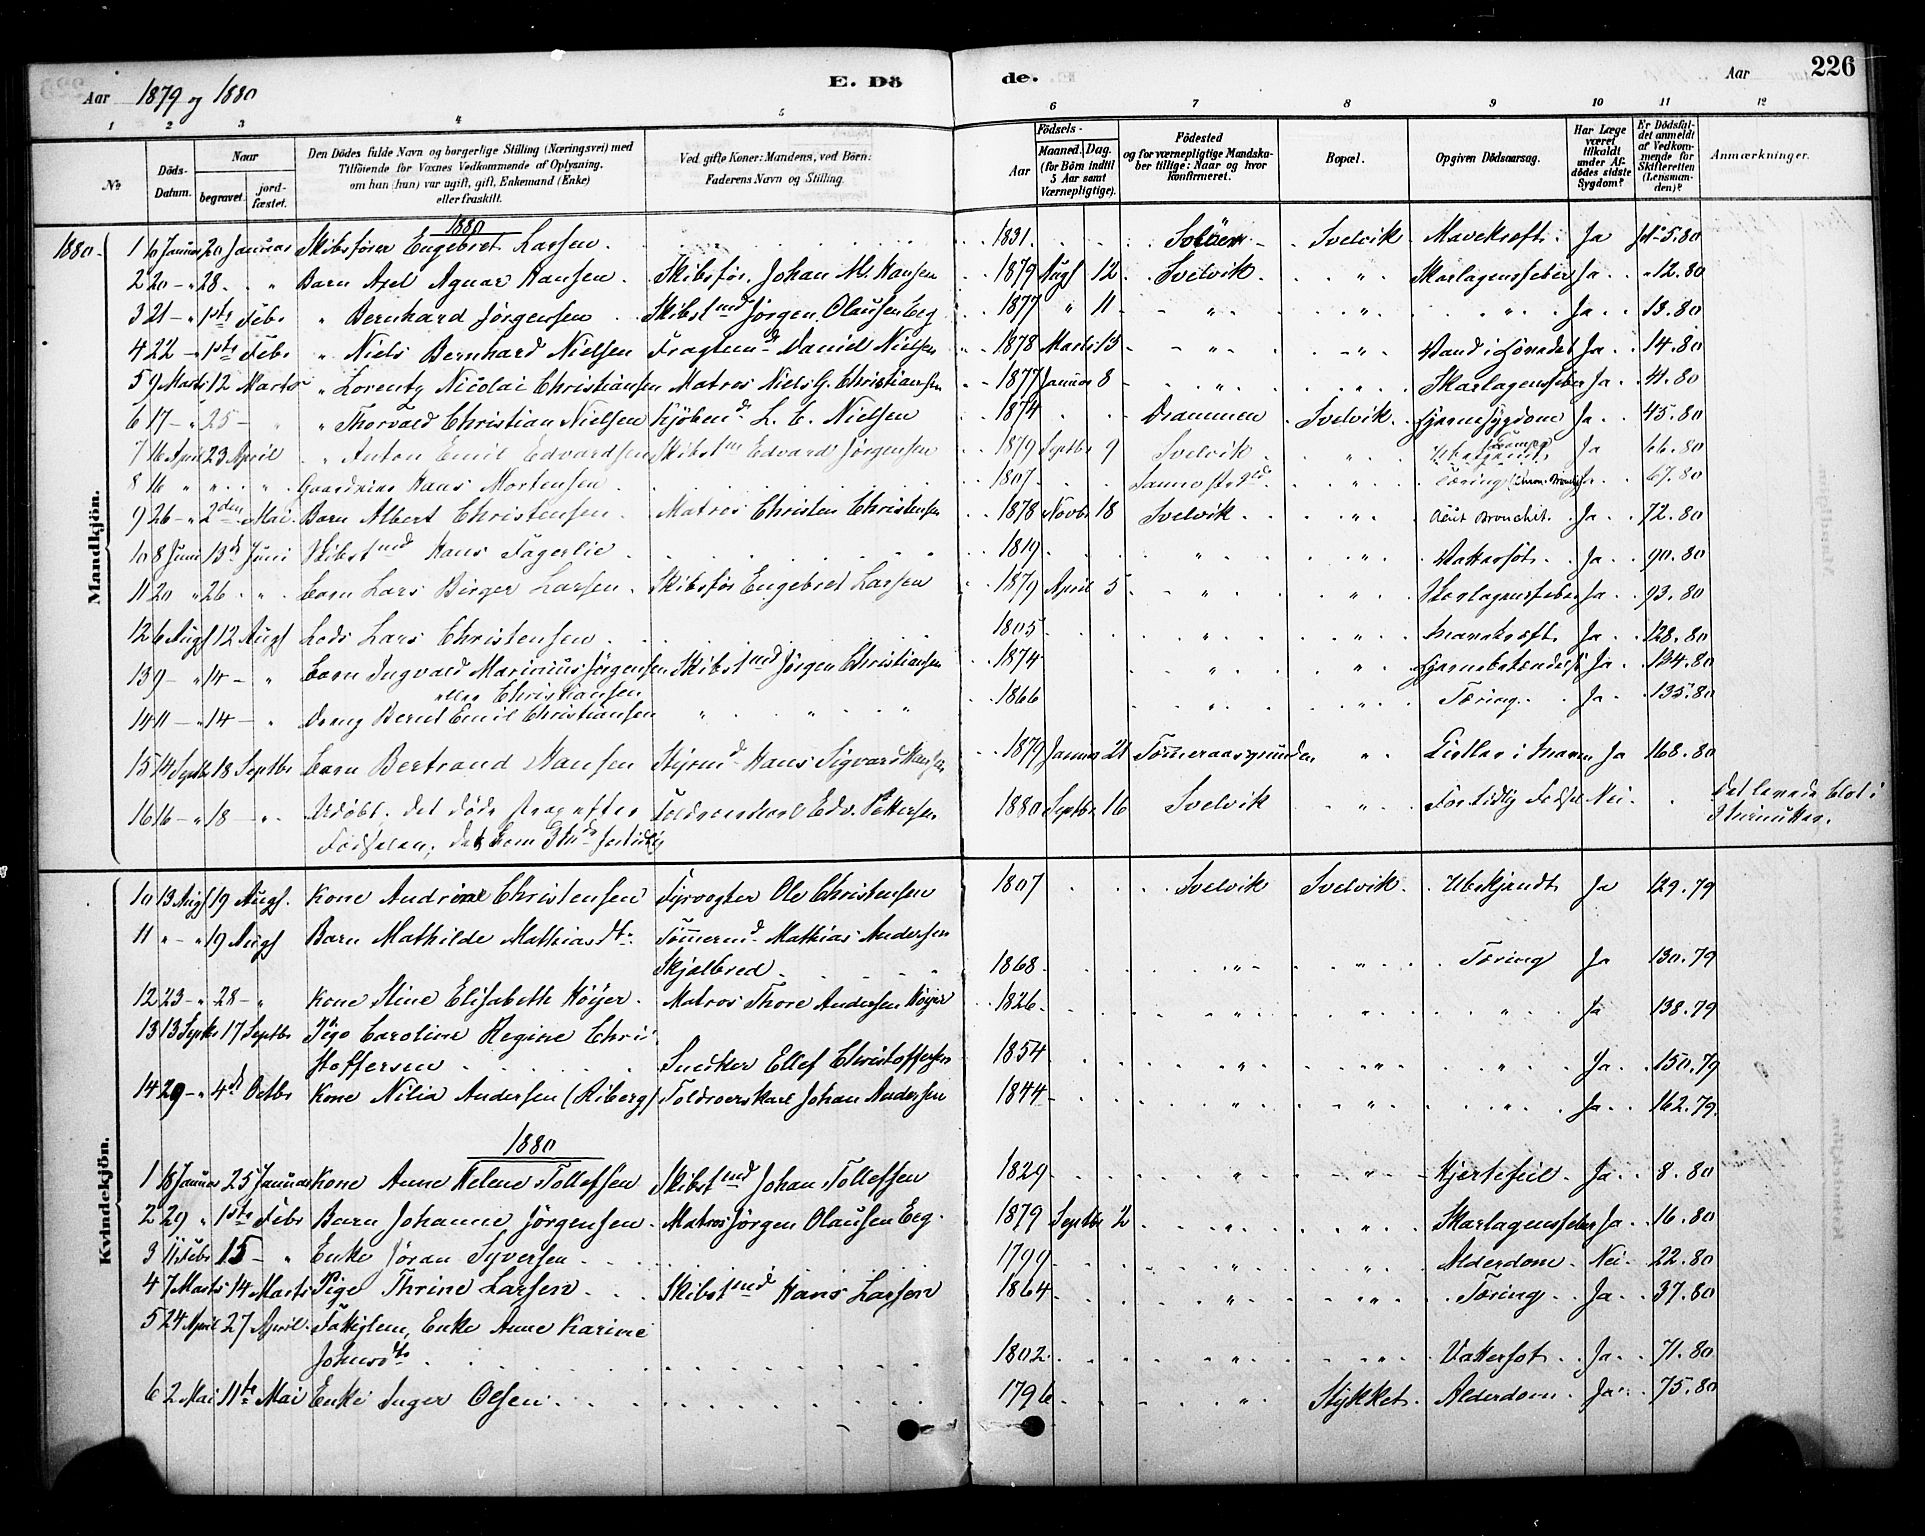 Aar 1879 og 1880
E. Dö de.
Aar 226
1 2 3 4 5 6 7 8 9 10 11 12
№
Döds-Datum.
Naar
begravet.
jord-fæstet.
Den Dödes fulde Navn og borgerlige Stilling (Næringsvei) med Tilföiende for Voxnes Vedkommende af Oplysning. om han (hun) var ugift, gift, Enkemand (Enke) eller fraskilt.
Ved gifte Koner: Mandens, ved Börn: Faderens Navn og Stilling.
Födsels-
Aar
Maaned. Dag.
(for Börn indtil 5 Aar samt Værnepligtige).
Födested og for værnepligtige Mandskaber tillige: Naar og hvor konfirmeret.
Bopæl.
Opgiven Dödsaarsag.
Har Læge været tilkaldt under Afdödes sidste Sygdom?
Er Dödsfaldet anmeldt af Vedkommende for Skifteretten (Lensmanden)?
Anmærkninger.
Mandkjön.
1880
1880 - 1 16 Januar 20 Januar Skibsfører Engebret Larsen. 1831. Svelvik Mavekræft. Ja № 5.80
2 20 - " 28 . " Barn Axel Agnar Hansen . Skibsför. Johan M. Hansen 1879 Augt 12 Svelvik " Skarlagensfeber Ja " 12.80
3 21 - " 1ste Febr " Bernhard Jörgensen Skibstmd Jörgen Olausen Eeg 1877 " 11 " " " Ja 13.80
4 22 - 1ste Febr " Niels Bernhard Nielsen Fragtemd Daniel Nielsen 1878 Marts 13 " " Vand i Hovedet Ja 14.80
5 9 Marts 12 Marts " Lorentz Nicolai Christiansen Matros Niels G. Christiansen 1877 Januar 8 " " Skarlagensfeber Ja 41.80
6 17 - " 25 - " " Thorvald Christian Nielsen Kjöbmd L. C. Nielsen 1874 Drammen Svelvik Hjernesygdom Ja 45.80
7 16 April 23 April " Anton Emil Edvardsen Skibstm Edvard Jörgensen 1879 Septbr 9 Svelvik " Ja 66.80
8 16 " " " Gaardeier Hans Mortensen 1807. Sanne " Tæring Ja 67.80
9 26 - " 2den Mai Barn Albert Christensen Matros Christen Christensen 1878 Novbr 18 Svelvik " Acut Bronchit. Ja 72.80
10 8 Juni 13de Juni Skibstmd Hans Fagerlie 1819 " " Vattersot Ja 90.80
11 20 " 26 " Barn Lars Birger Larsen Skibsför Engebret Larsen 1879 April 5 " " Skarlagensfeber Ja 93.80
12 6 Augt 12 Augt Lods Lars Christensen 1805 " " Mavekræft Ja 128.80
13 9 - " 14 - " Barn Ingvald Marinius Jörgensen Skibstmd Jörgen Christiansen 1874 " " Hjernebetændelse Ja 124.80
eller Christiansen
14 11 - " 14 - " Dreng Bernt Emil Christiansen " " " 1866 " " Tæring Ja 135.80
15 14 Septbr 18 Septbr Barn Bertrand Hansen Styrmd Hans Sigvard Hansen 1879 Januar 21 Tømmeraasgrunden " i Maven Ja 168.80
16 16 - " 18 - " Udöbt. det döde strax efter Toldroerskarl Edv. Pettersen 1880 Septbr 16 Svelvik " For tidlig Födsel Nei Det levede blot i
Födselen, det kom 3 Mdr for tidlig 5 Minutter.
Kvindekjön.
10 13 Augt 19 Augt. Kone Andrine Christensen Fyrvogter Ole Christensen 1807 Svelvik Svelvik Ubekjendt Ja 129.79
11 " - " 19 Augt Barn Mathilde Mathiasdtr Tömmermd Mathias Andersen
Skjælbred 1868 " " Tæring Ja 130.79
12 23 - " 28 - " Kone Stine Elisabeth Höyer Matros Thore Andersen Höyer 1826 " " " Ja 138.79
13 13 Septbr 17 Septbr Pige Caroline Regine Chri-
stoffersen Snedker Ellef Christoffersen 1854 " " " Ja 150.79
14 29 - " 4de Octbr Kone Nilia Andersen (Riberg) Toldroerskarl Johan Andersen 1844 " " " Ja 162.79
1880
1 18 Januar 25 Januar Kone Anne Helene Tollefsen Skibstmd Johan Tollefsen 1829 " " Hjertefeil Ja 8.80
2 29 " 1ste Febr Barn Johanne Jörgensen Matros Jörgen Olausen Eeg. 1879 Septbr 2 " " Skarlagensfeber Ja 16.80
3 11 Febr 15 - " Enke Jöran Syversen 1799 " " Alderdom Nei 22.80
4 7 Marts 14 Marts Pige Thrine Larsen Skibstmd Hans Larsen 1864 " " Tæring Ja 37.80
5 24 April 27 April Fattiglem, Enke Anne Karine
Johnsdtr 1802 " " Vattersot Ja 71.80
6 2 Mai 11te Mai Enke Inger Olsen 1796 " Stykket Alderdom Ja 75.80